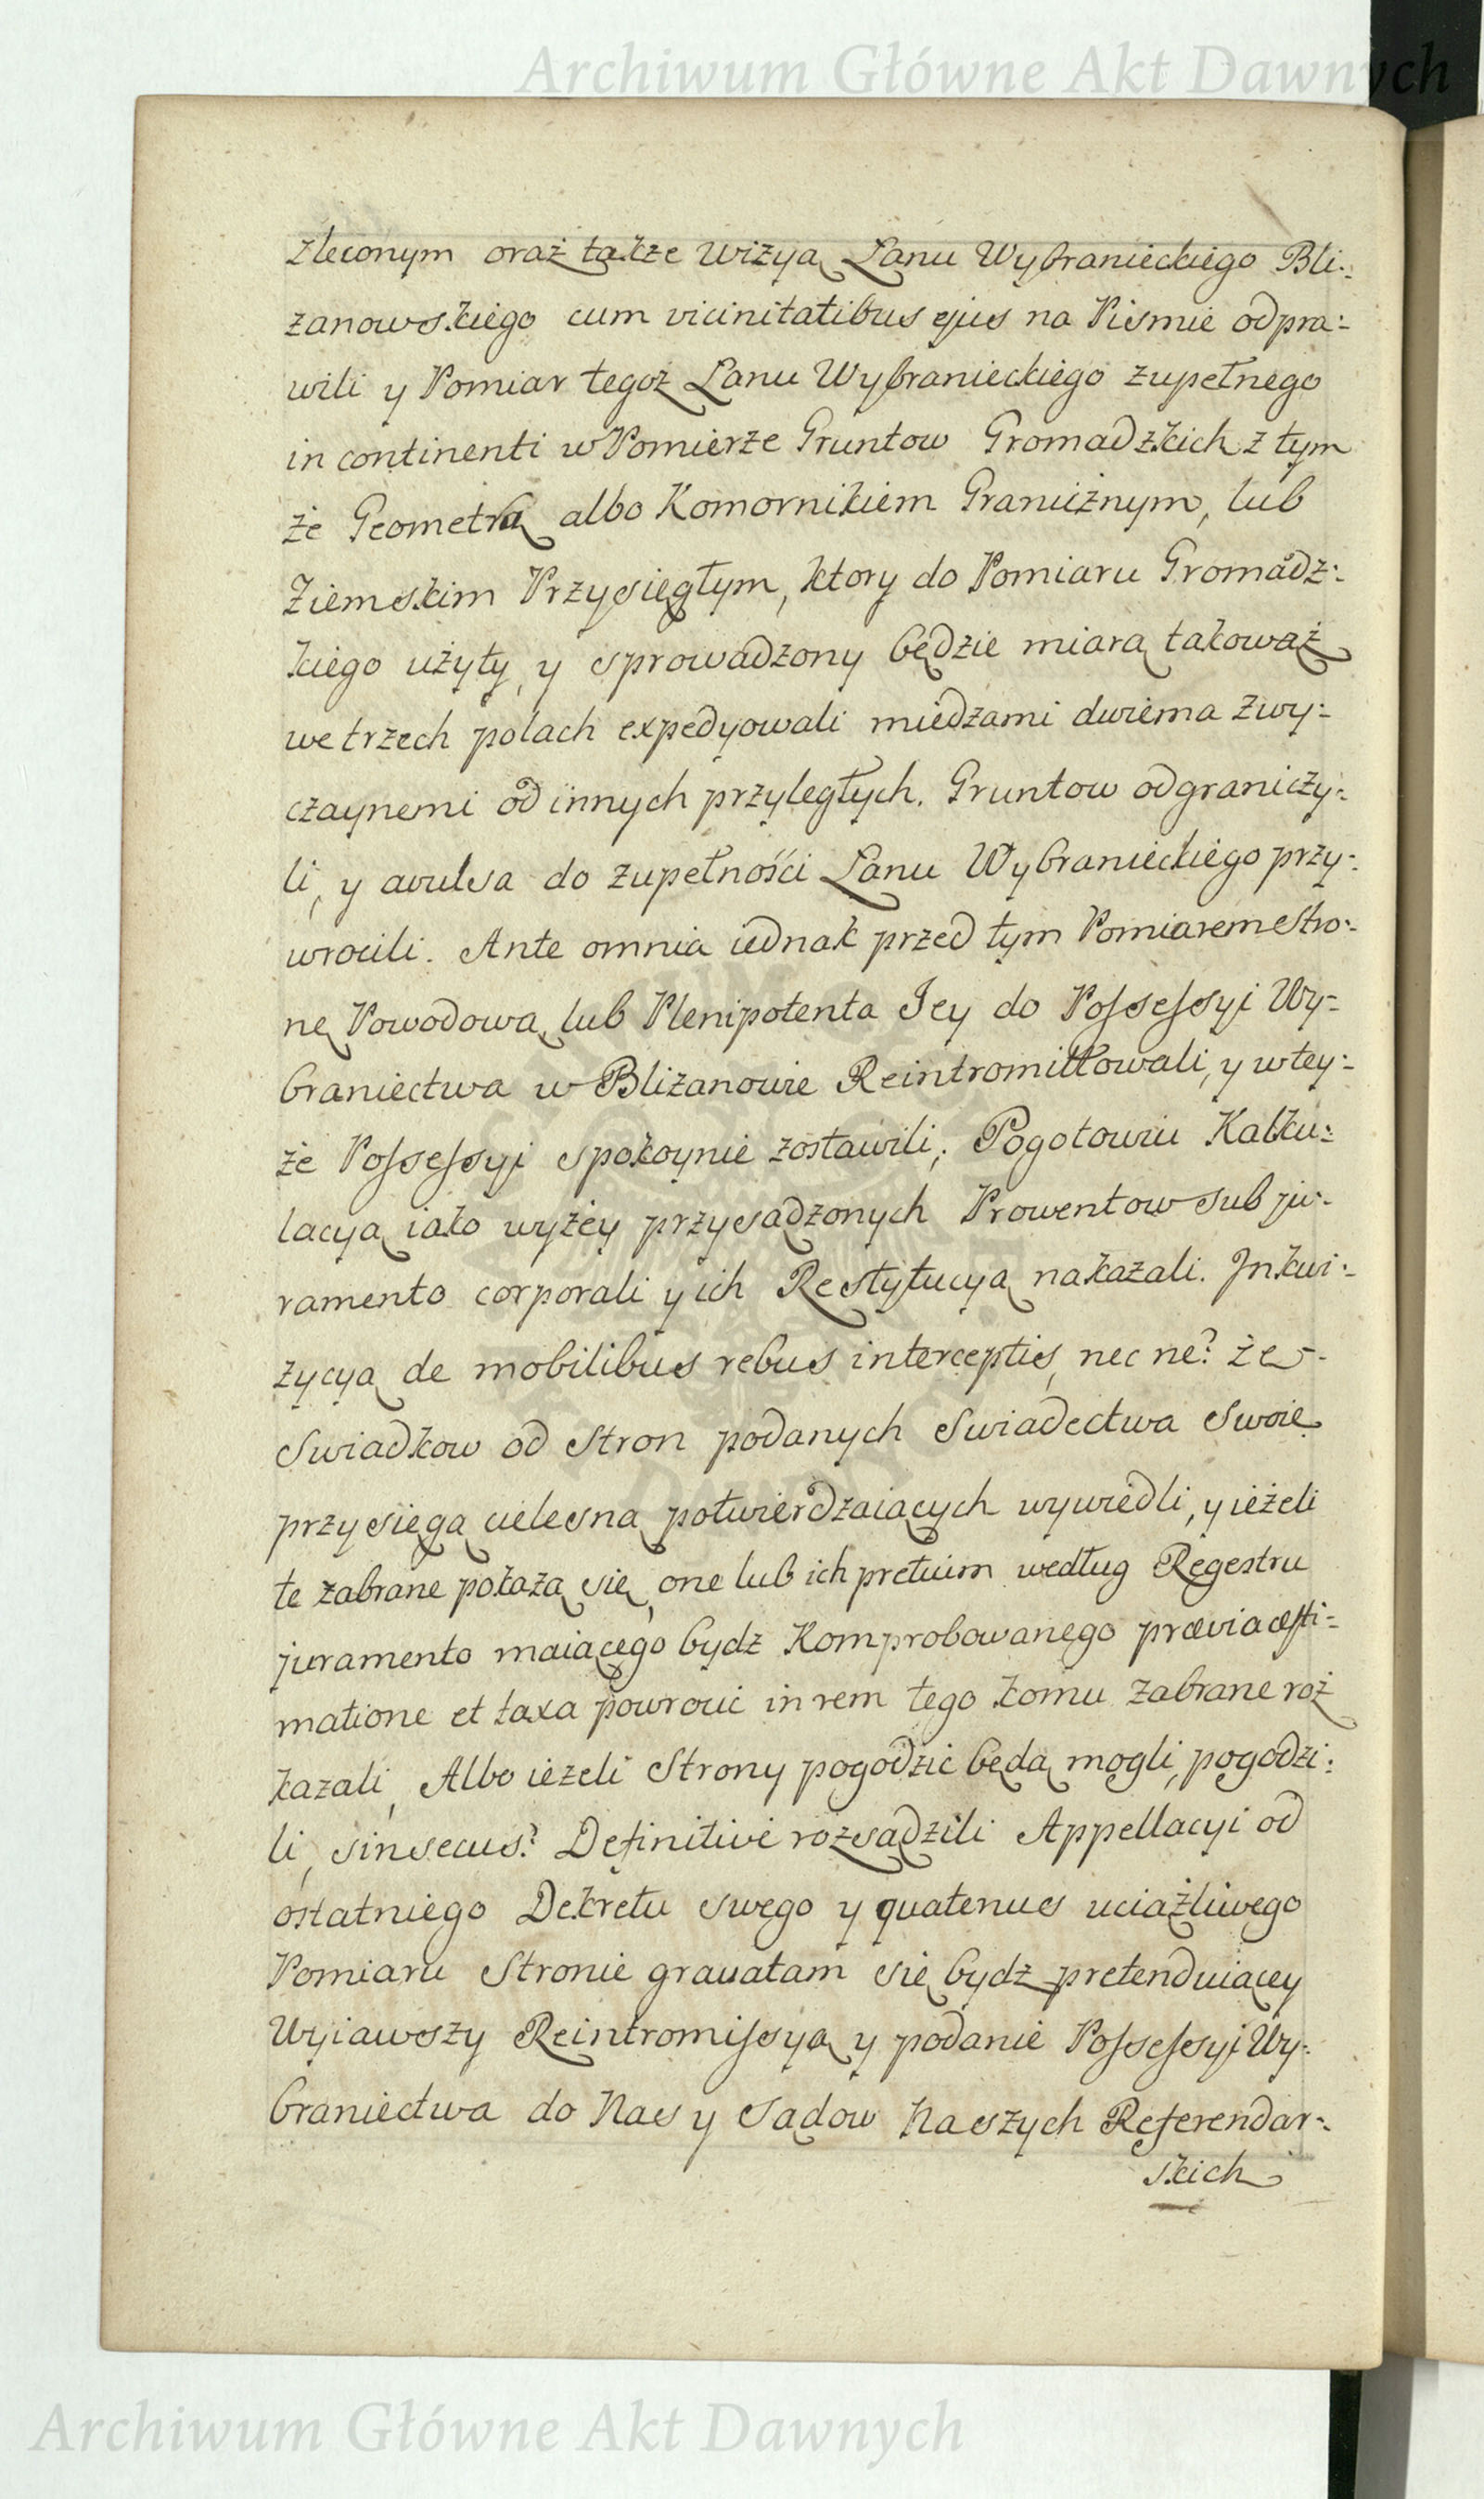 Archiwum Główne Akt Dawnych
zleconym oraz także wizyą Łanu Wybranieckiego Bli:
zanowskiego cum vicinitatibus ejus na Pismie odpra:
wili y Pomiar tegoż Łanu Wybranieckiego zupełnego
in continenti w Pomierze Gruntow Gromadzkich z tym
że Geometrą albo Komornikiem Graniznym, lub
Ziemskim Przysięgłym, ktory do Pomiaru Gromadz:
kiego użyty, y sprowadzony będzie miarą takowąż
we trzech polach expedyowali miedzami dwiema zwy:
czaynemi od innych przyległych. Gruntow odgraniczy:
li, y avulsa do zupełności Łanu Wybranieckiego przy:
wrocili. Ante omnia iednak przed tym Pomiarem Stro:
nę Powodową lub Plenipotenta Jey do Possessyi Wy:
braniectwa w Blizanowie Reintromittowali, y w tey:
że Possessyi spokoynie zostawili; Pogotowiu Kalku:
lacyą iako wyżey przysądzonych Prowentow sub ju:
ramento corporali y ich Restytucyą nakazali. Inkwi:
zycyą de mobilibus rebus interceptis, nec ne? ze
Swiadkow od Stron podanych Swiadectwa Swoie
przysięgą cielesną potwierdzaiących wywiedli, y ieżeli
te zabrane pokażą się, one lub ich pretium według Regestru
juramento maiącego bydz Komprobowanego prævia æsti:
matione et taxa powrocić in rem tego komu zabrane roz
kazali, Albo ieżeli Strony pogodzić będą mogli, pogodzi:
li, sin secus? Definitive rozsądzili Appellacyi od
ostatniego Dekretu swego y quatenus uciążliwego
Pomiaru Stronie gravatam się bydz pretenduiącey
Wyiąwszy Reintromissyą y podanie Possessyi Wy:
braniectwa do Nas y Sądow Naszych Referendar:
skich
Archiwum Główne Akt Dawnych